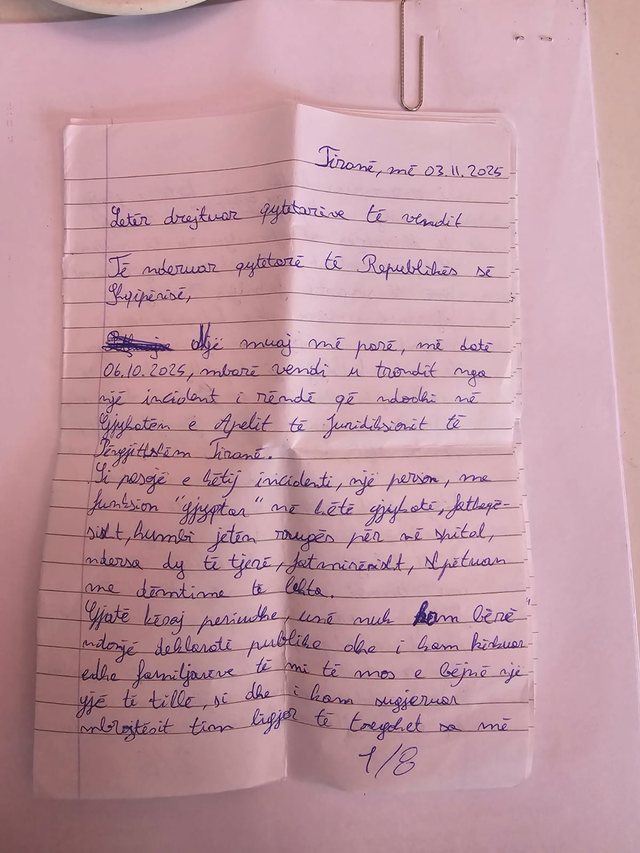 Tiranë, më 03.11.2025
Letër drejtuar qytetarëve të vendit
Të nderuar qytetarë të Republikës së
Shqipërisë,
Një muaj më parë, më datë
06.10.2025, mbarë vendi u trondit nga
një incident i rëndë që ndodhi në
Gjykatën e Apelit të Juridiksionit të
Përgjithshëm Tiranë.
Si pasojë e këtij incidenti, një person, me
funksion "gjyqtar" në këtë gjykatë, fatkeqë-
sisht, humbi jetën rrugës për në spital,
ndërsa dy të tjerë, fatmirësisht, shpëtuan
me dëmtime të lehta.
Gjatë kësaj periudhe, unë nuk kam bërë
ndonjë deklaratë publike dhe i kam kërkuar
edhe familjarëve të mi të mos e bëjnë një
gjë të tillë, si dhe i kam sugjeruar
mbrojtësit tim ligjor të tregohet sa më
1/8